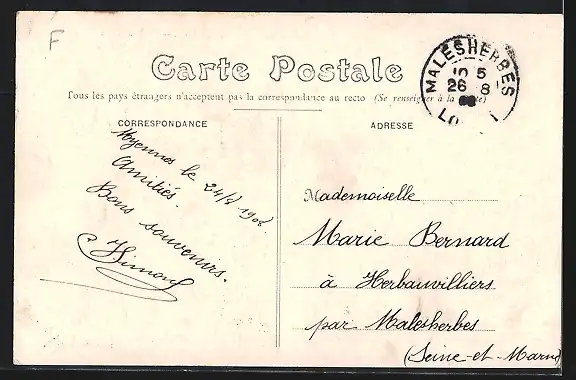 F
Carte Postale
Tous les pays étrangers n'acceptent pas la correspondance au recto (Se renseigner à la Poste)
CORRESPONDANCE
Mayennes le 24/8 1908
Amitiés.
Bons souvenirs.
ADRESSE
Mademoiselle
Marie Bernard
à Herbauvilliers
par Malesherbes
(Seine-et-Marne
MALESHERBES
10 5
26 8
08